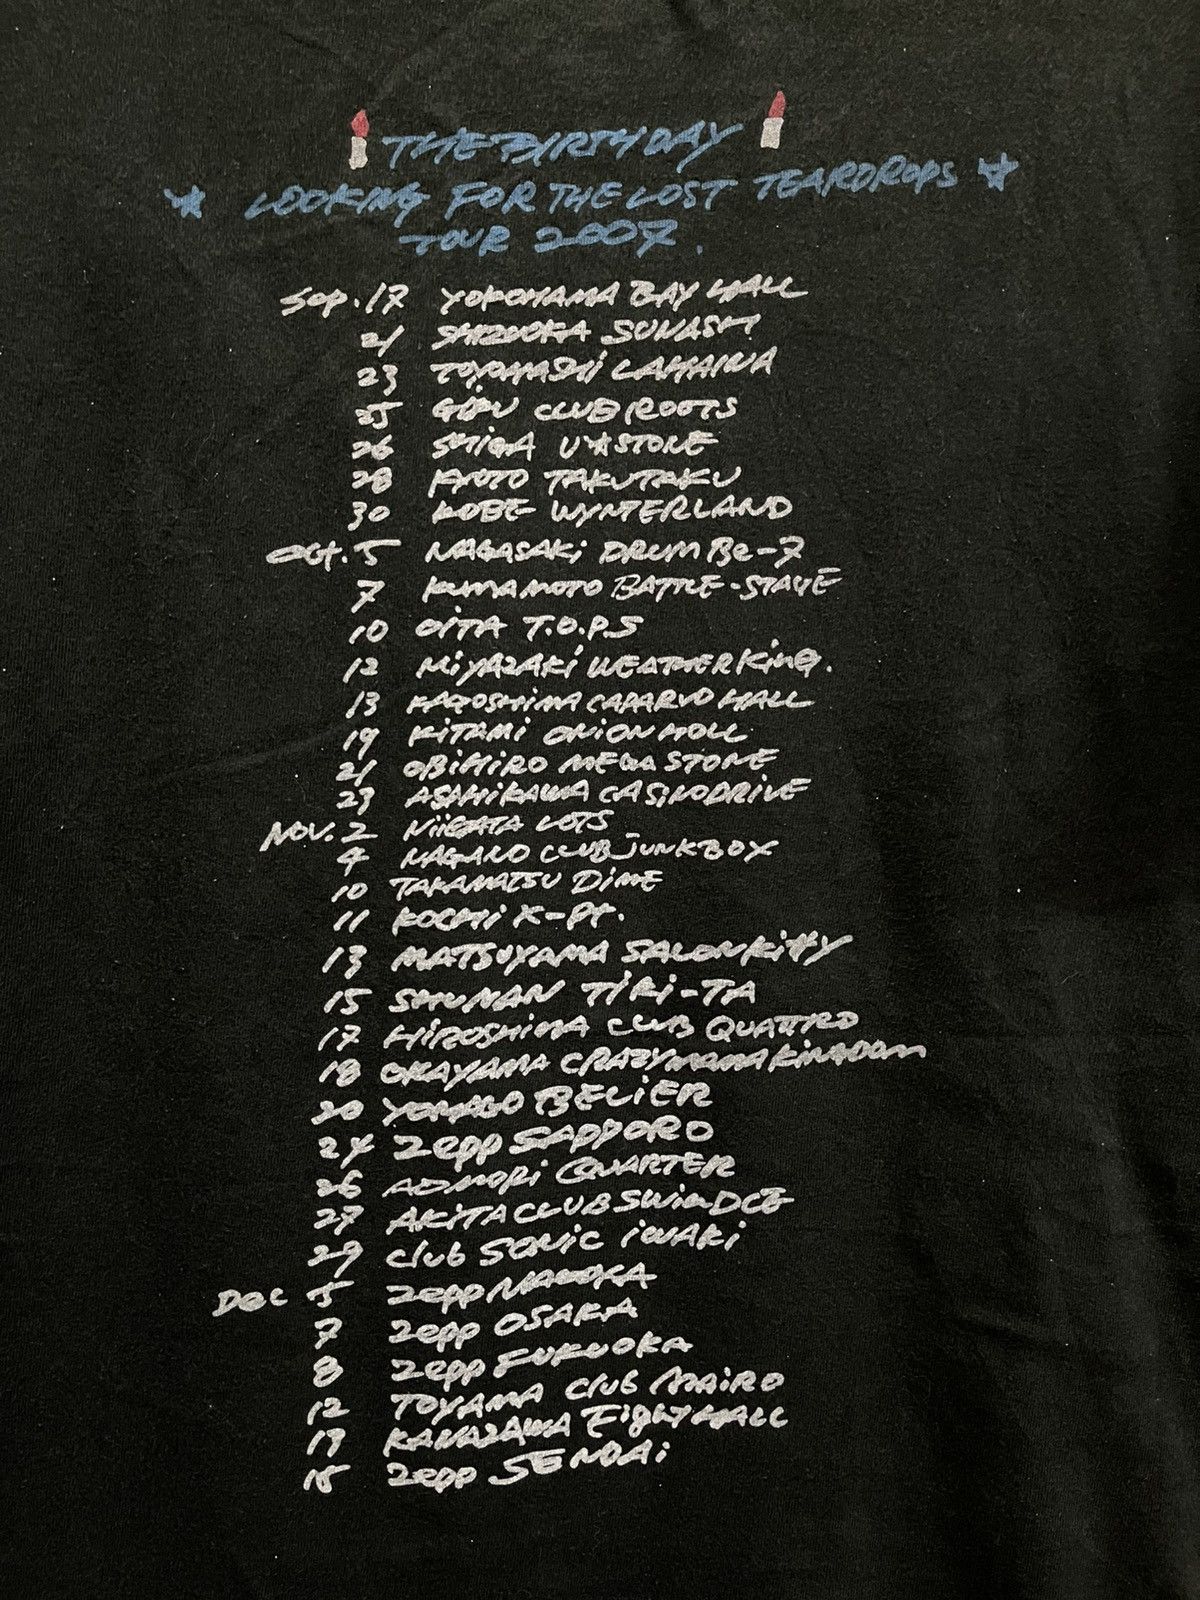 THE BIRTHDAY
LOOKING FOR THE LOST TEARDROPS
TOUR 2007.
Sep. 17 YOKOHAMA BAY HALL
21 SHIZUOKA SUNASH
23 TOYOHASHI LAHAINA
25 GIFU CLUB ROOTS
26 SHIGA U★STONE
28 KYOTO TAKUTAKU
30 KOBE WYNTERLAND
Oct. 5 NAGASAKi DRUM Be-7
7 KUMAMOTO BATTLE-STAGE
10 OiTA T.O.P.S
12 MiYAZAKi WEATHERKiNG.
13 KAGOSHiMA CAPARVO HALL
19 KiTAMi ONiON HOLL
21 OBiHiRO MEGA STONE
23 ASAHiKAWA CASiNODRiVE
NOV. 2 NiiGATA LOTS
4 NAGANO CLUB JUNK BOX
10 TAKAMATSU DiME
11 KOCHi X-Pt.
13 MATSUYAMA SALONKiTTY
15 SHUNAN TiKi-TA
17 HiROSHiMA CLUB QUATTRO
18 OKAYAMA CRAZYMAMA KiNGDOM
20 YONAGO BELiER
24 Zepp SAPPORO
26 AOMORi QUARTER
27 AKiTA CLUB SWiNDLE
29 club SONiC iWAKi
Dec 5 Zepp NAGOKA
7 Zepp OSAKA
8 Zepp FUKUOKA
12 TOYAMA Club MAiRO
13 KANAZAWA EightHALL
15 Zepp SENDAi